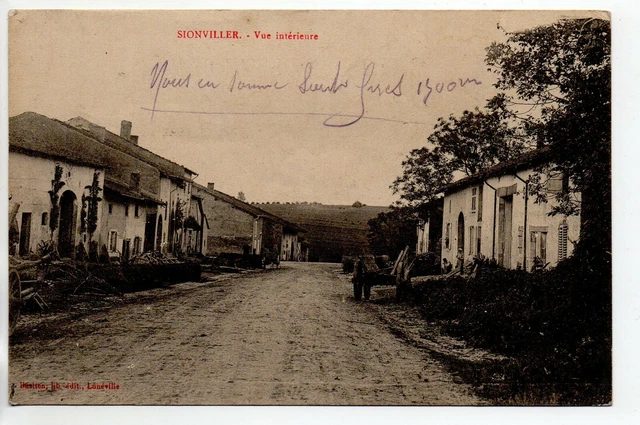 SIONVILLER. - Vue intérieure
Nous en sommes 1500 m
Bastien, lib. édit., Lunéville